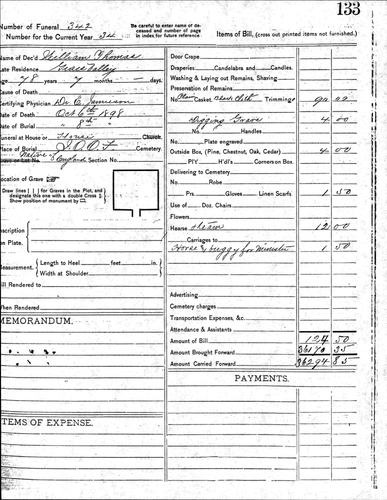 133
Number of Funeral 342
Number for the Current Year 34
Be carefull to enter name of deceased and number of page in index for future reference.
Items of Bill, (cross out printed items not furnished.)
Name of Dec'd William Thomas
Late Residence Grass Valley
Age 78 years 7 months - days
Cause of Death
Certifying Physician Dr C Jamieson
Date of Death Oct 6th 1898
Date of Burial 8th
Funeral at House or House Church
Place of Burial I.O.O.F. Cemetery
Native of England Section No.
Location of Grave
Draw lines [ ] for Graves in the Plot, and designate this one with a double Cross
Show position of monument by
Inscription
on Plate.
Measurement.
Length to Heel feet in.
Width at Shoulder
Bill Rendered to
When Rendered
MEMORANDUM.
ITEMS OF EXPENSE.
Door Crape
Draperies Candelabra and Candles.
Washing & Laying out Remains, Shaving
Preservation of Remains
No Casket, Cloth Trimming 90 00
Digging Grave 4 00
No. Handles
No. Plate engraved
Outside Box, (Pine, Chestnut, Oak, Cedar) 4 00
PIY. H'dl's Corners on Box.
Delivering to Cemetery
No. Robe
Prs. Gloves Linen Scarfs 1 50
Use of Doz. Chair
Flowers
Hearse & team 12 00
Carriages to
Horse & buggy for Minister 1 50
Advertising
Cemetery charges
Transportation Expenses, &c.
Attendance & Assistants
Amount of Bill 124 50
Amount Brought Forward 36170 35
Amount Carried Forward 36294 85
PAYMENTS.